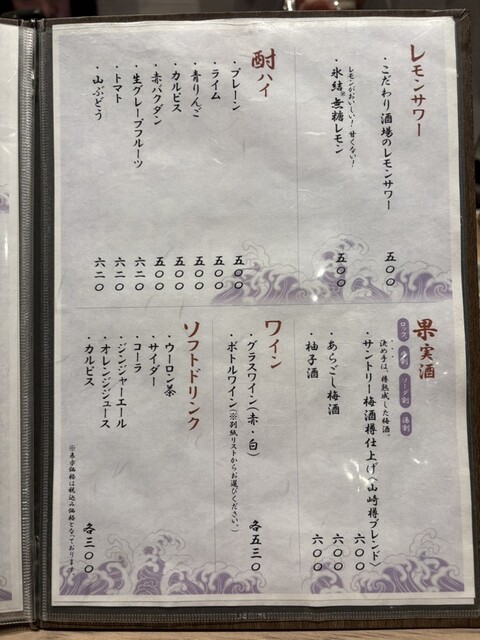 レモンサワー
・こだわり酒場のレモンサワー 五〇〇
レモンがおいしい！甘くない！
・氷結®無糖レモン 五〇〇
酎ハイ
・プレーン 五〇〇
・ライム 五〇〇
・青りんご 五〇〇
・カルピス 五〇〇
・赤バクダン 五〇〇
・生グレープフルーツ 六二〇
・トマト 六二〇
・山ぶどう 六二〇
果実酒
ロック ソーダ割 湯割
決め手は、樽熟成した梅酒。
・サントリー梅酒樽仕上げ〈山崎樽ブレンド〉 六〇〇
・あらごし梅酒 六〇〇
・柚子酒 六〇〇
ワイン
・グラスワイン(赤・白) 各五三〇
・ボトルワイン(※別紙リストからお選びください。)
ソフトドリンク
・ウーロン茶
・サイダー
・コーラ
・ジンジャーエール
・オレンジジュース
・カルピス 各三〇〇
※表示価格は税込み価格となっております。